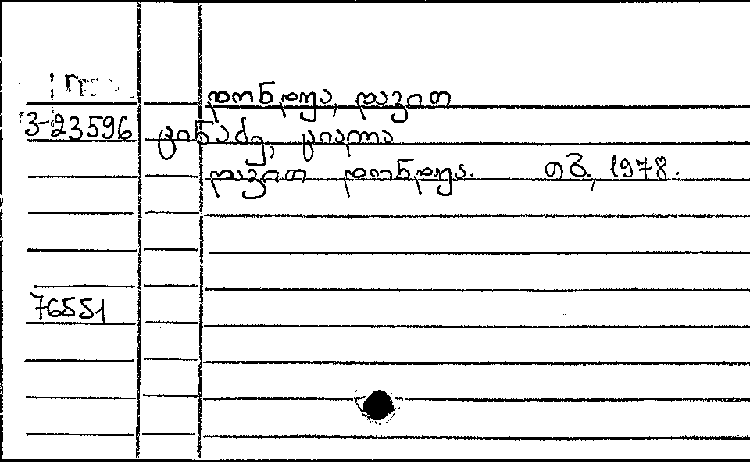 დონდუა, დავით
3-23596 ციალა
დავით დონდუა. თბ., 1978.
76551